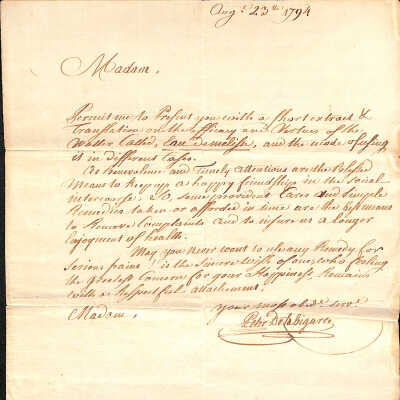 Augt. 23th. 1794
Madam,
Permit me to Present you with a Short extract &
Translation on the efficacy and Vertues of the
Watter Called, Eau De melisse, and the mode of using
it in different Cases.
As benevolence and Timely Attentions are the
Means to keep up a happy friendship in the Social
intercourse: So, Some provident Cares and Simple
Remedies taken or afforded in time are the best means
to Remove Complaints and to insure us a Longer
Enjoyment of health.
May you never want to use any Remedy for
Serious pains! is the Sincere wish of one, who feeling
the greatest Concern for your Happiness, Remains
with a Respectful attachement.
your most obdt. Servt.
Madam,
Peter